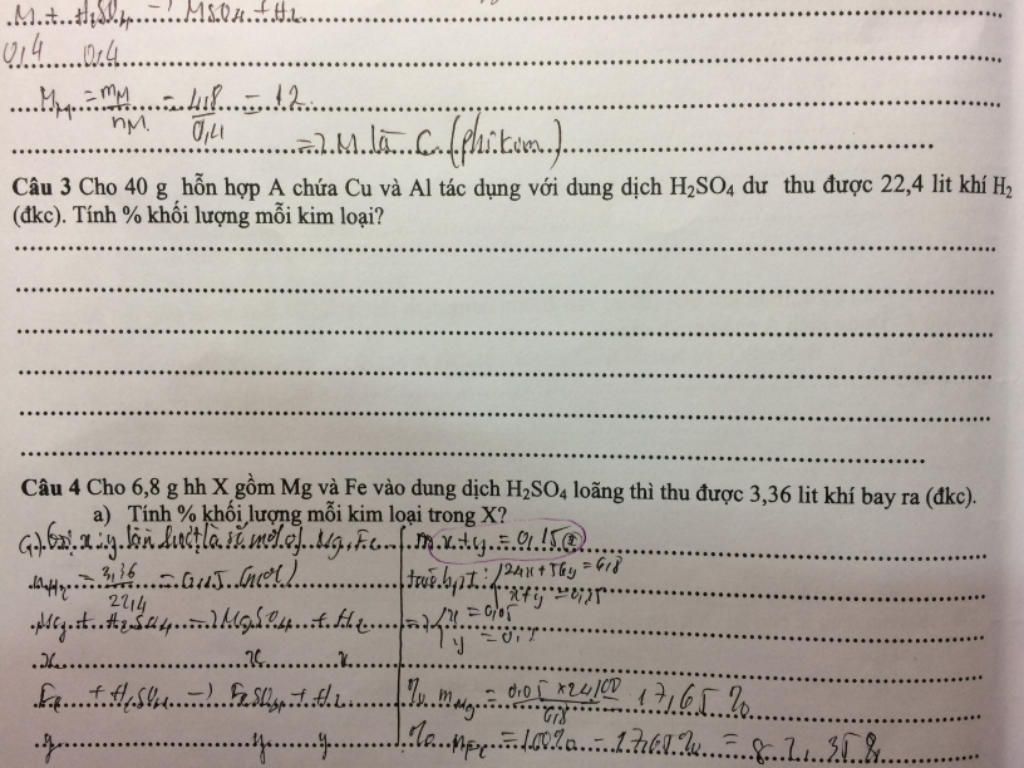 M + H₂SO₄ → MSO₄ + H₂
0,4 0,4
M_M = m_M / n_M = 4,8 / 0,4 = 12
=> M là C (phi kim)
Câu 3 Cho 40 g hỗn hợp A chứa Cu và Al tác dụng với dung dịch H₂SO₄ dư thu được 22,4 lit khí H₂
(đkc). Tính % khối lượng mỗi kim loại?
Câu 4 Cho 6,8 g hh X gồm Mg và Fe vào dung dịch H₂SO₄ loãng thì thu được 3,36 lit khí bay ra (đkc).
a) Tính % khối lượng mỗi kim loại trong X?
x, y lần lượt là số mol of Mg, Fe
n_H₂ = 3,36 / 22,4 = 0,15 (mol)
Mg + H₂SO₄ → MgSO₄ + H₂
x x x
Fe + H₂SO₄ → FeSO₄ + H₂
y y y
x + y = 0,15 (2)
24x + 56y = 6,8
x + y = 0,15
=> x = 0,05
y = 0,1
% m_Mg = 0,05 × 24 / 6,8 100 17,65 %
% m_Fe = 100% - 17,65% = 82,35 %